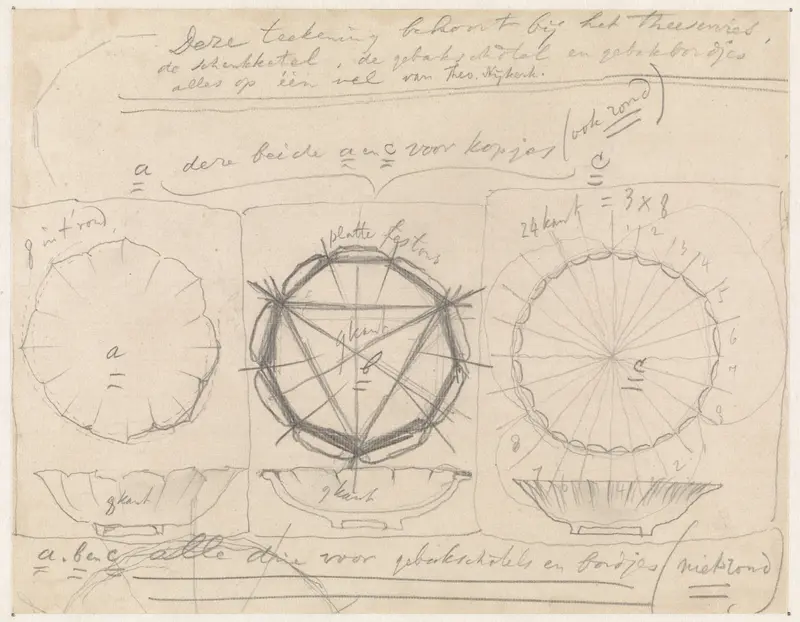 Deze teekening behoort bij het theeservies,
de schenkketel, de gebakschotel en gebakbordjes
alles op één vel van Theo. Nijberk.
a deze beide a en c voor kopjes (ook rond)
c
= 3 x 8
8 in 't rond
platte festons
24 kant
1 2 3 4 5 6 7 8
a
9 kant
b
c
8 7 6 4 2
9 kant
9 kant
a. b en c alle drie voor gebakschotels en bordjes (niet rond)